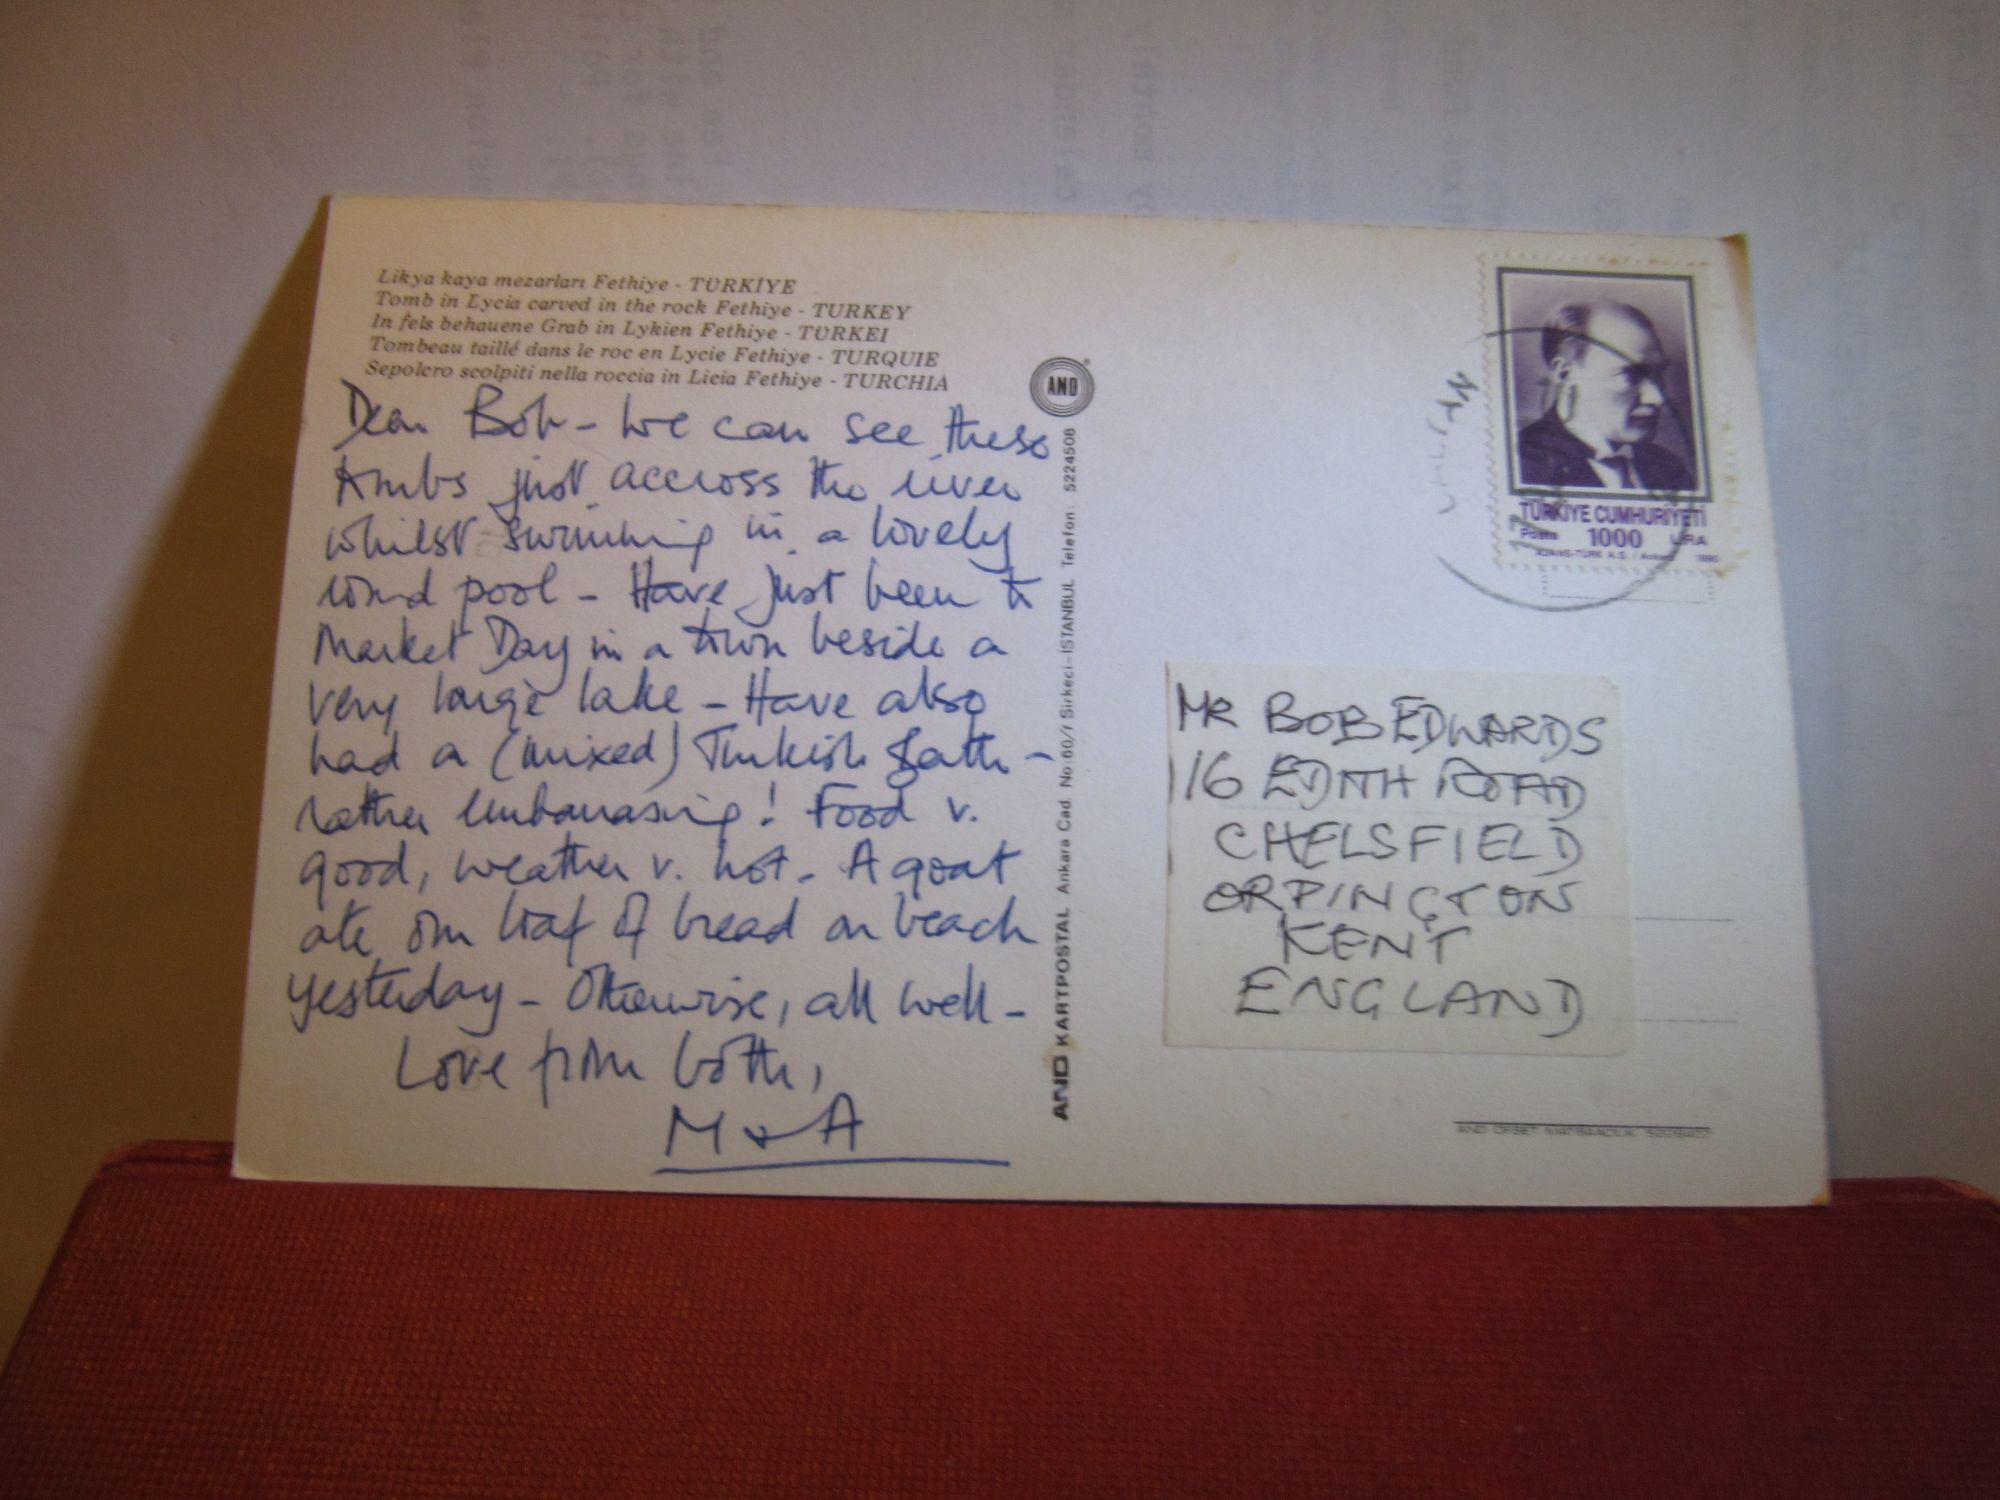 Likya kaya mezarları Fethiye - TÜRKİYE
Tomb in Lycia carved in the rock Fethiye - TURKEY
In fels behauene Grab in Lykien Fethiye - TÜRKEI
Tombeau taillé dans le roc en Lycie Fethiye - TURQUIE
Sepolcro scolpiti nella roccia in Licia Fethiye - TURCHIA
Dear Bob - We can see these
tombs just accross the river
whilst swimming in a lovely
round pool - Have just been to
Market Day in a town beside a
very large lake - Have also
had a (mixed) Turkish Bath -
rather embarrasing! Food v.
good, weather v. hot. A goat
ate our loaf of bread on beach
yesterday - Otherwise, all well -
Love from both,
M & A
AND
AND KARTPOSTAL Ankara Cad. No:60/1 Sirkeci-İSTANBUL Telefon: 5224508
TÜRKİYE CUMHURİYETİ
Posta 1000 LİRA
AJANS-TÜRK A.Ş. / Ankara 1990
MR BOB EDWARDS
16 EDITH ROAD
CHELSFIELD
ORPINGTON
KENT
ENGLAND
AND OFSET MATBAACILIK